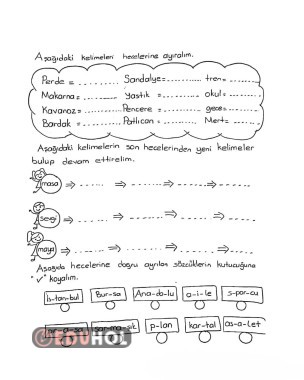 Aşağıdaki kelimeleri hecelerine ayıralım.
Perde = ........... Sandalye=........... tren= .........
Makarna= ........... Yastık = ........... okul= .........
Kavanoz= ........... Pencere = ........... gece= .........
Bardak = ........... Patlıcan = ........... Mert= .........
Aşağıdaki kelimelerin son hecelerinden yeni kelimeler
bulup devam ettirelim.
masa ⇒ ...... ⇒ ...... ⇒ ...... ⇒ ......
sevgi ⇒ ...... ⇒ ...... ⇒ ...... ⇒ ......
maya ⇒ ...... ⇒ ...... ⇒ ...... ⇒ ......
Aşağıda hecelerine doğru ayrılan sözcüklerin kutucuğuna
"✓" koyalım.
İs-tan-bul Bur-sa Ana-do-lu a-i-le s-por-cu
sar-ma-şık p-lan kar-tal as-a-let
EDUHOL